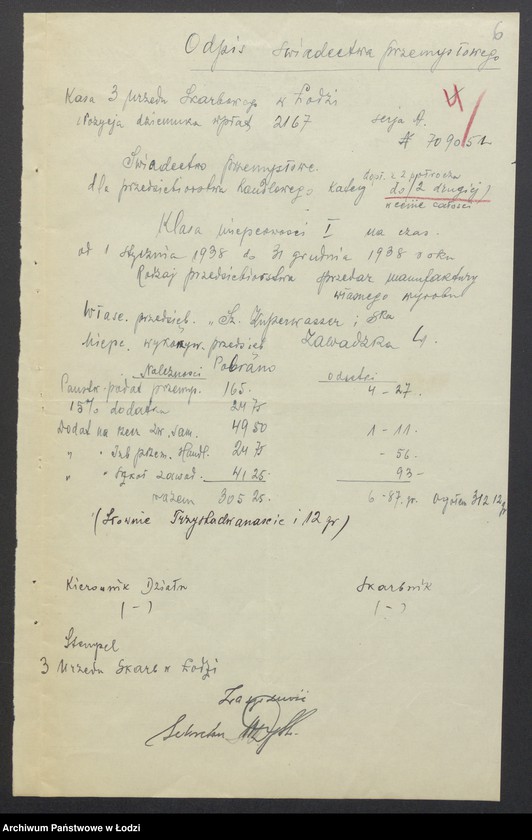 6
Odpis Swiadectwa przemysłowego
Kasa 3 Urzedu Skarbowego w Łodzi
Pozycja dziennika wpłat 2167 serja A.
# 709051
Swiadectwo przemysłowe.
dla przedsiebiorstwa handlowego kateg do (2 drugiej)
w cenie całości
Klasa miejscowości I na czas.
od 1 Stycznia 1938 do 31 grudnia 1938 roku
Rodzaj przedsiebiorstwa Sprzedaz manufaktury
własnego wyrobu
Własc. przedsieb. „Sz. Kuperwasser i Ska
Miejsc. wykonyw. przedsieb Zawadzka 4.
Należnosci Pobrano odsetki
Panstw. podat przemysł. 165. 4-27.
15% dodatku 24 75
Dodat na rzecz zw. sam. 49 50 1-11.
" " Izb przem. Handl. 24 75 - 56.
" " szkoł zawod. 41 25- 93-
razem 305 25. 6-87. gr. ogółem 312 12 gr
(Słownie Trzystadwanascie i 12 gr)
Kierownik Działu Skarbnik
(-) (-)
Stempel
3 Urzedu Skarb w Łodzi
Za zgodność
Sekretarz
Archiwum Państwowe w Łodzi